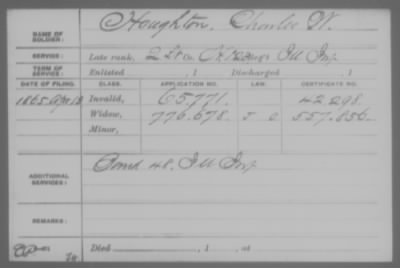 NAME OF SOLDIER: Houghton, Charlie W.
SERVICE: Late rank, 2 Lt Co. Reg't Ill Inf
TERM OF SERVICE: Enlisted , 1 Discharged , 1
DATE OF FILING. CLASS. APPLICATION NO. LAW. CERTIFICATE NO.
1865 Apr 18 Invalid, 65.771. 42.298.
Widow, 776.678. 557.856.
Minor,
ADDITIONAL SERVICES: 48. Ill Inf
REMARKS:
Died , 1 , at